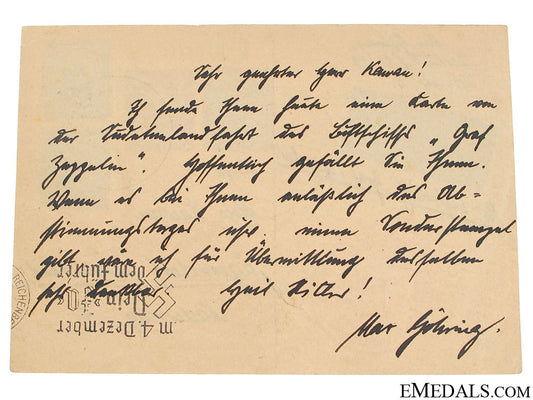 Sehr geehrter Herr Kawan!
Ich sende Ihnen heute eine Karte von
der Sudetenlandfahrt des Luftschiffs „Graf
Zeppelin“. Hoffentlich gefällt Sie Ihnen.
Wenn es bei Ihnen anläßlich des Ab=
stimmungstages usw. einen Sonderstempel
gibt wär ich für Übermittlung desselben
sehr dankbar Heil Hitler!
Max Göhring.
m 4. Dezember
Dein „Ja“
dem Führer
REICHENB
EMEDALS.COM